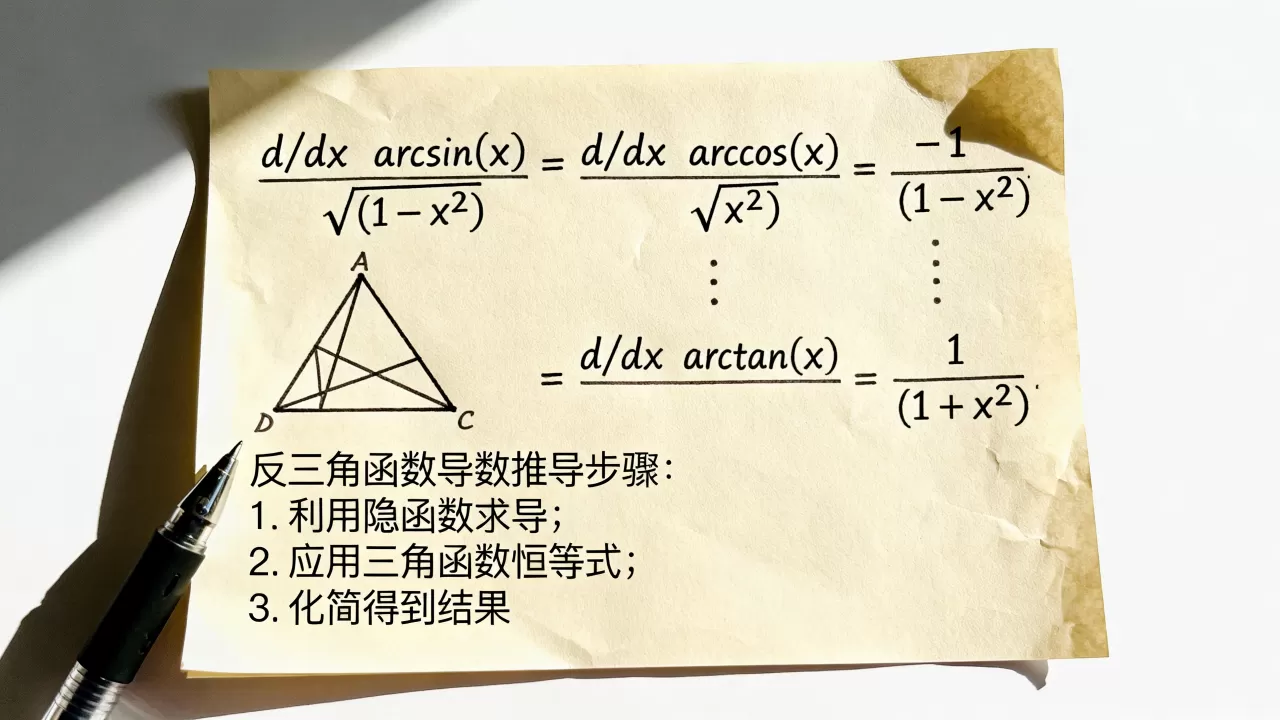 d/dx arcsin(x) / √(1−x²) = d/dx arccos(x) / √x²) = −1 / (1−x²)
⋮ ⋮
= d/dx arctan(x) = 1 / (1+x²)
A
D C
反三角函数导数推导步骤：
1. 利用隐函数求导；
2. 应用三角函数恒等式；
3. 化简得到结果